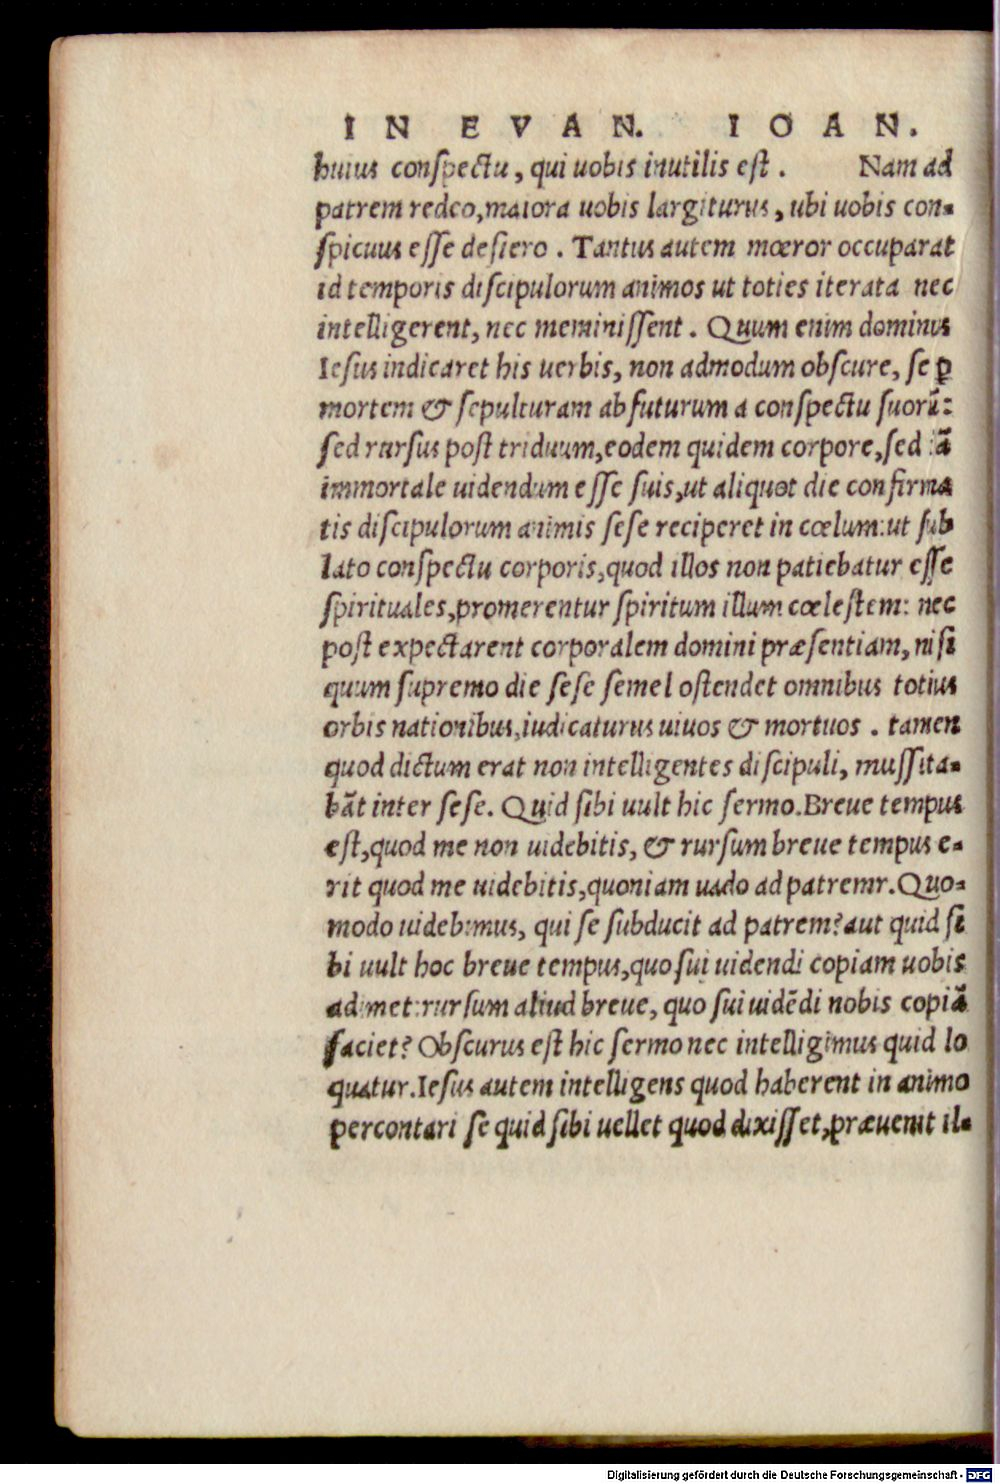 IN EVAN. IOAN.
huius conſpectu, qui uobis inutilis eſt. Nam ad
patrem redeo, maiora uobis largiturus, ubi uobis con-
ſpicuus eſſe deſiero. Tantus autem mœror occuparat
id temporis diſcipulorum animos ut toties iterata nec
intelligerent, nec meminiſſent. Quum enim dominus
Ieſus indicaret his uerbis, non admodum obſcure, ſe ꝑ
mortem & ſepulturam abfuturum a conſpectu ſuorũ:
ſed rurſus poſt triduum, eodem quidem corpore, ſed iã
immortale uidendum eſſe ſuis, ut aliquot die confirma
tis diſcipulorum animis ſeſe reciperet in cœlum: ut ſub
lato conſpectu corporis, quod illos non patiebatur eſſe
ſpirituales, promerentur ſpiritum illum cœleſtem: nec
poſt expectarent corporalem domini præſentiam, niſi
quum ſupremo die ſeſe ſemel oſtendet omnibus totius
orbis nationibus, iudicaturus uiuos & mortuos. tamen
quod dictum erat non intelligentes diſcipuli, muſſita-
bãt inter ſeſe. Quid ſibi uult hic ſermo. Breue tempus
eſt, quod me non uidebitis, & rurſum breue tempus e-
rit quod me uidebitis, quoniam uado ad patremr. Quo-
modo uidebimus, qui ſe ſubducit ad patrem? aut quid ſi
bi uult hoc breue tempus, quo ſui uidendi copiam uobis
adimet: rurſum aliud breue, quo ſui uidẽdi nobis copiã
faciet? Obſcurus eſt hic ſermo nec intelligimus quid lo
quatur. Ieſus autem intelligens quod haberent in animo
percontari ſe quid ſibi uellet quod dixiſſet, præuenit il-
Digitalisierung gefördert durch die Deutsche Forschungsgemeinschaft - DFG